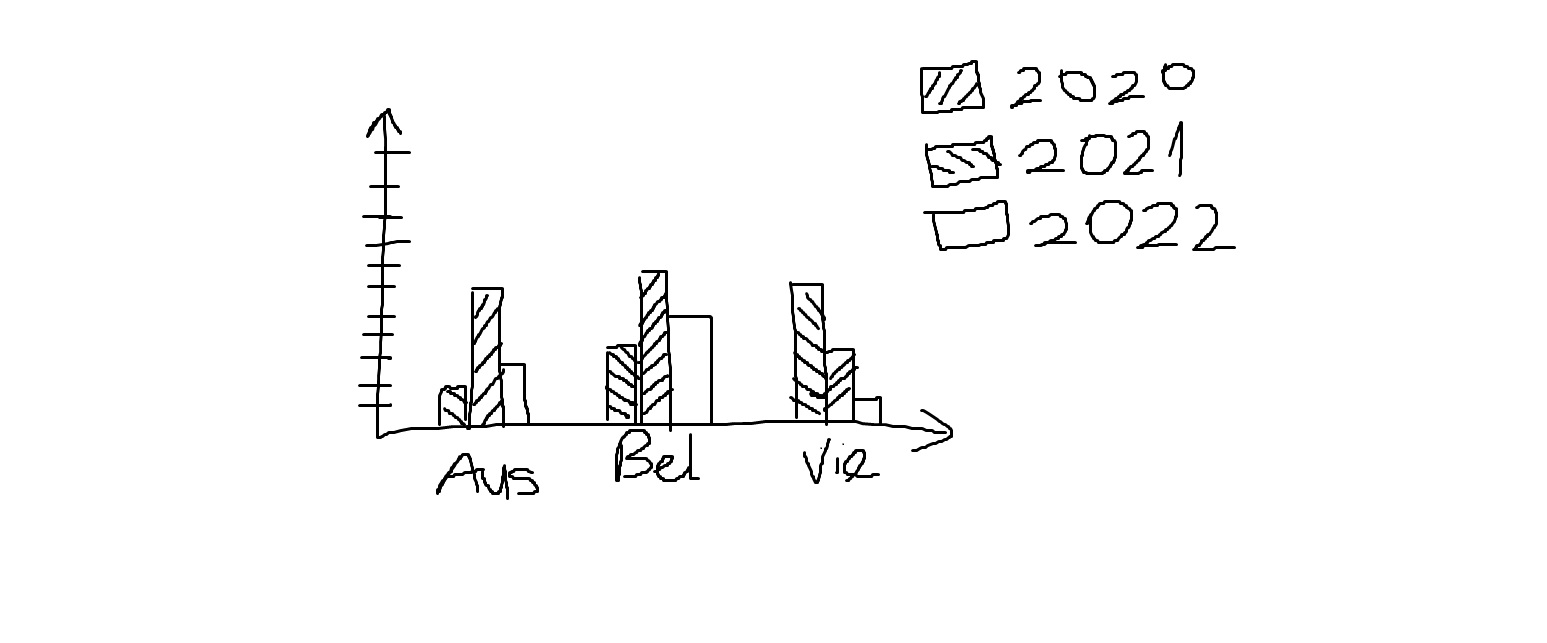 2020
2021
2022
Aus
Bel
Vie